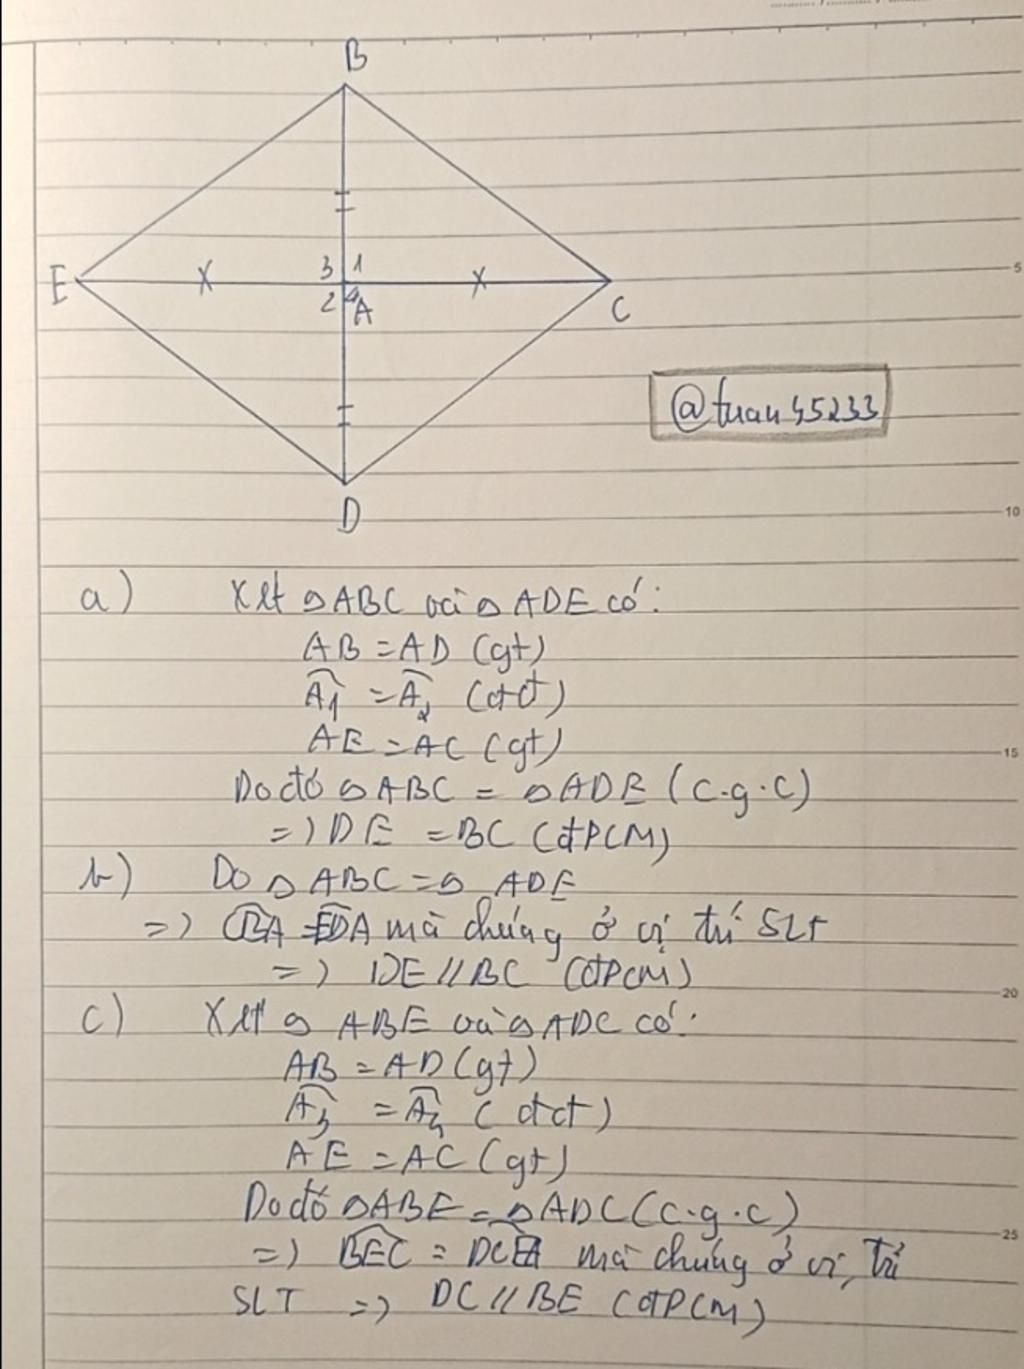 B
E
3 1
2 4 A
C
5
@tuan45233
D
10
a) Xét △ABC và △ADE có:
AB = AD (gt)
Â1 = Â2 (đđ)
15
AE = AC (gt)
Do đó △ABC = △ADE (c.g.c)
=> DE = BC (đPCM)
b) Do △ABC = △ADE
=> CBA = EDA mà chúng ở vị trí SLT
=> DE // BC (đPCM)
20
c) Xét △ABE và △ADC có:
AB = AD (gt)
Â3 = Â4 (đđ)
AE = AC (gt)
Do đó △ABE = △ADC (c.g.c)
25
=> BEC = DCE mà chúng ở vị trí
SLT => DC // BE (đPCM)